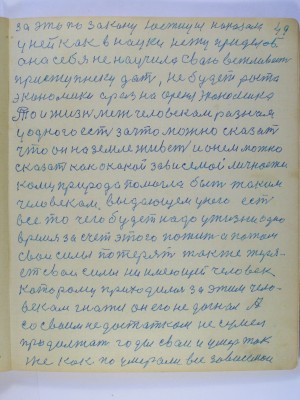 за это по закону юстиции показат 49
у ней как в науки нету
она себя не научила свою
преступнику дат, не будет
экономики сразу на
То и жизн меж человеком разная
у одного ест за что можно сказат
что он на земле живёт и о нем можно
сказат как о какой зависемой личности
кому природа помогла быт таким
человеком, выдающем у него ест
все то чего будет надо у жизни одно
время за счет этого пожит а потом
свои силы потерят также
ст свои силы ни имеющей человек
которому приходилос за этим чело-
веком гнатся он его не догнал А
со своим недостатком не сумел
продолжат годы свои и умер так
же как по умерали все зависемои